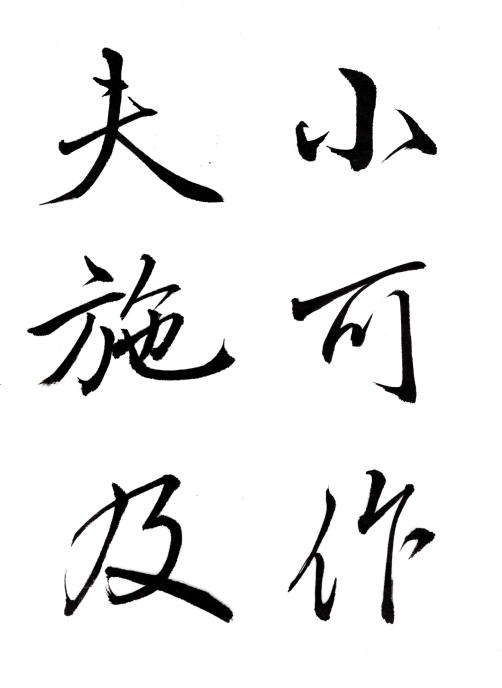 小可作
夫施及